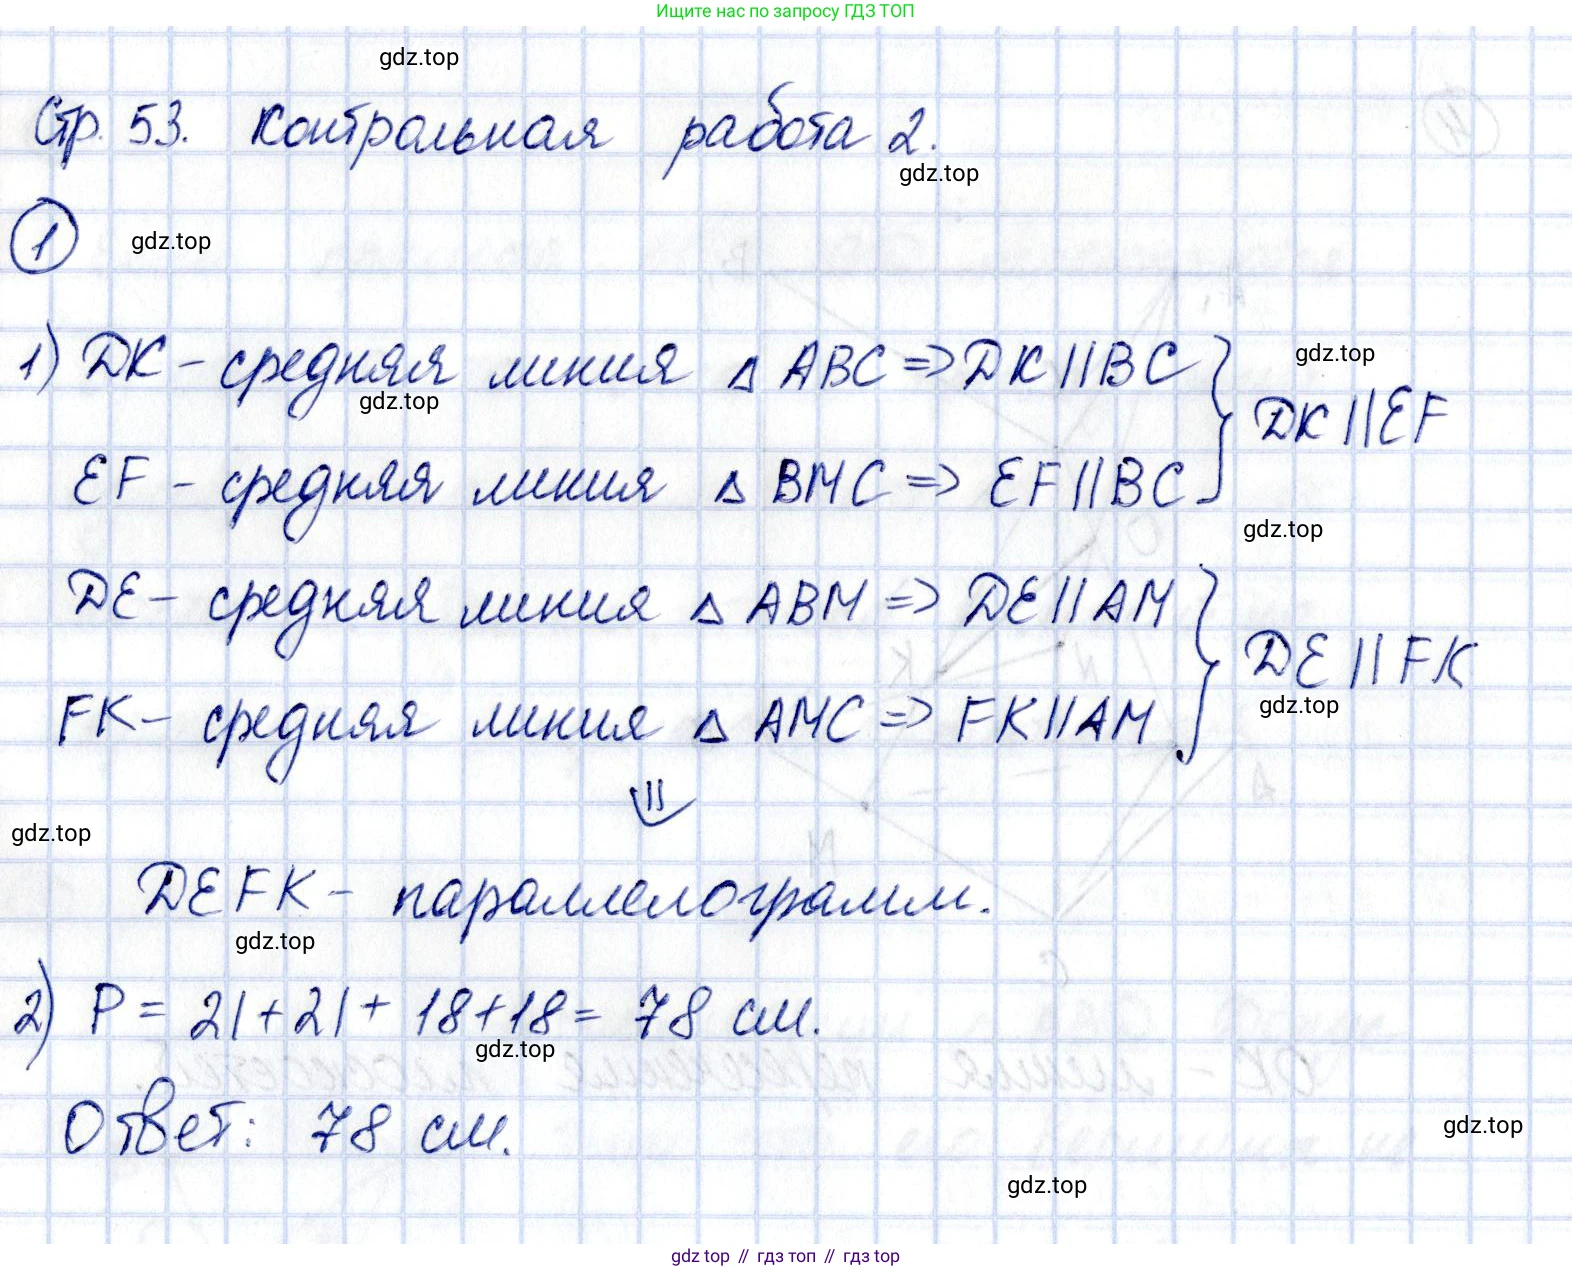 Ищите нас по запросу ГДЗ ТОП
gdz.top
Стр. 53. Контрольная работа 2.
gdz.top
1
gdz.top
1) DK - средняя линия △ ABC => DK || BC
gdz.top
DK || EF
gdz.top
EF - средняя линия △ BMC => EF || BC
gdz.top
DE - средняя линия △ ABM => DE || AM
DE || FK
gdz.top
FK - средняя линия △ AMC => FK || AM
gdz.top
DEFK - параллелограмм.
gdz.top
2) P = 21 + 21 + 18 + 18 = 78 см.
gdz.top
Ответ: 78 см.
gdz.top
gdz.top
gdz top // гдз топ // гдз top